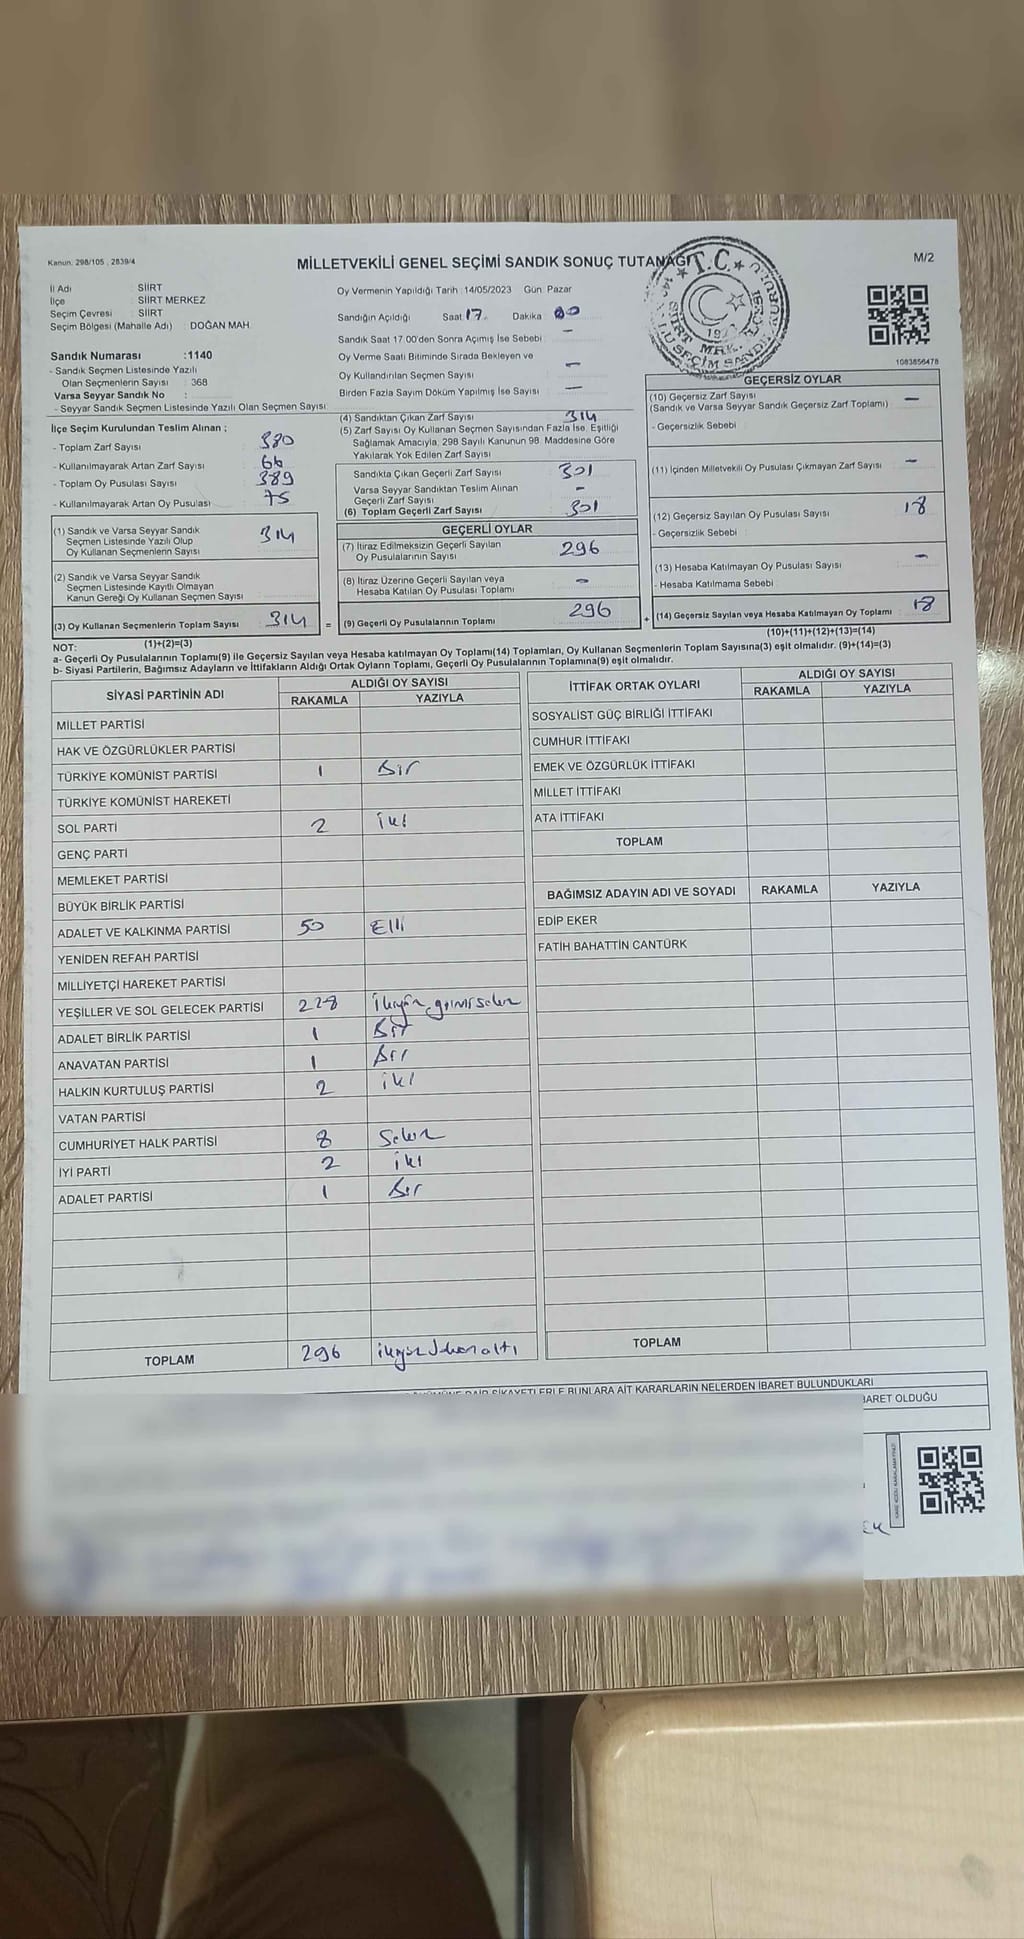 Kanun: 298/105 , 2839/4
MİLLETVEKİLİ GENEL SEÇİMİ SANDIK SONUÇ TUTANAĞI
M/2
İl Adı : SİİRT
İlçe : SİİRT MERKEZ
Seçim Çevresi : SİİRT
Seçim Bölgesi (Mahalle Adı) : DOĞAN MAH.
Sandık Numarası :1140
- Sandık Seçmen Listesinde Yazılı
Olan Seçmenlerin Sayısı : 368
Varsa Seyyar Sandık No :
- Seyyar Sandık Seçmen Listesinde Yazılı Olan Seçmen Sayısı
Oy Vermenin Yapıldığı Tarih :14/05/2023 Gün: Pazar
Sandığın Açıldığı Saat 17 Dakika 00
Sandık Saat 17.00'den Sonra Açılmış İse Sebebi : -
Oy Verme Saati Bitiminde Sırada Bekleyen ve
Oy Kullandırılan Seçmen Sayısı -
Birden Fazla Sayım Döküm Yapılmış İse Sayısı -
T.C.
1083856478
İlçe Seçim Kurulundan Teslim Alınan ;
- Toplam Zarf Sayısı 380
- Kullanılmayarak Artan Zarf Sayısı 66
- Toplam Oy Pusulası Sayısı 389
- Kullanılmayarak Artan Oy Pusulası 75
(1) Sandık ve Varsa Seyyar Sandık
Seçmen Listesinde Yazılı Olup
Oy Kullanan Seçmenlerin Sayısı 314
(2) Sandık ve Varsa Seyyar Sandık
Seçmen Listesinde Kayıtlı Olmayan
Kanun Gereği Oy Kullanan Seçmen Sayısı
(3) Oy Kullanan Seçmenlerin Toplam Sayısı 314 =
(1)+(2)=(3)
(4) Sandıktan Çıkan Zarf Sayısı 314
(5) Zarf Sayısı Oy Kullanan Seçmen Sayısından Fazla İse, Eşitliği
Sağlamak Amacıyla, 298 Sayılı Kanunun 98. Maddesine Göre
Yakılarak Yok Edilen Zarf Sayısı
Sandıkta Çıkan Geçerli Zarf Sayısı 301
Varsa Seyyar Sandıktan Teslim Alınan
Geçerli Zarf Sayısı -
(6) Toplam Geçerli Zarf Sayısı 301
GEÇERLİ OYLAR
(7) İtiraz Edilmeksizin Geçerli Sayılan
Oy Pusulalarının Sayısı 296
(8) İtiraz Üzerine Geçerli Sayılan veya
Hesaba Katılan Oy Pusulası Toplamı -
(9) Geçerli Oy Pusulalarının Toplamı 296 +
GEÇERSİZ OYLAR
(10) Geçersiz Zarf Sayısı
(Sandık ve Varsa Seyyar Sandık Geçersiz Zarf Toplamı) -
- Geçersizlik Sebebi
(11) İçinden Milletvekili Oy Pusulası Çıkmayan Zarf Sayısı -
(12) Geçersiz Sayılan Oy Pusulası Sayısı 18
- Geçersizlik Sebebi
(13) Hesaba Katılmayan Oy Pusulası Sayısı -
- Hesaba Katılmama Sebebi
(14) Geçersiz Sayılan veya Hesaba Katılmayan Oy Toplamı 18
(10)+(11)+(12)+(13)=(14)
NOT:
a- Geçerli Oy Pusulalarının Toplamı(9) ile Geçersiz Sayılan veya Hesaba katılmayan Oy Toplamı(14) Toplamları, Oy Kullanan Seçmenlerin Toplam Sayısına(3) eşit olmalıdır. (9)+(14)=(3)
b- Siyasi Partilerin, Bağımsız Adayların ve İttifakların Aldığı Ortak Oyların Toplamı, Geçerli Oy Pusulalarının Toplamına(9) eşit olmalıdır.
SİYASİ PARTİNİN ADI ALDIĞI OY SAYISI
RAKAMLA YAZIYLA
MİLLET PARTİSİ
HAK VE ÖZGÜRLÜKLER PARTİSİ
TÜRKİYE KOMÜNİST PARTİSİ 1 Bir
TÜRKİYE KOMÜNİST HAREKETİ
SOL PARTİ 2 iki
GENÇ PARTİ
MEMLEKET PARTİSİ
BÜYÜK BİRLİK PARTİSİ
ADALET VE KALKINMA PARTİSİ 50 Elli
YENİDEN REFAH PARTİSİ
MİLLİYETÇİ HAREKET PARTİSİ
YEŞİLLER VE SOL GELECEK PARTİSİ 228
ADALET BİRLİK PARTİSİ 1 Bir
ANAVATAN PARTİSİ 1 Bir
HALKIN KURTULUŞ PARTİSİ 2 iki
VATAN PARTİSİ
CUMHURİYET HALK PARTİSİ 8 Sekiz
İYİ PARTİ 2 iki
ADALET PARTİSİ 1 Bir
TOPLAM 296
İTTİFAK ORTAK OYLARI ALDIĞI OY SAYISI
RAKAMLA YAZIYLA
SOSYALİST GÜÇ BİRLİĞİ İTTİFAKI
CUMHUR İTTİFAKI
EMEK VE ÖZGÜRLÜK İTTİFAKI
MİLLET İTTİFAKI
ATA İTTİFAKI
TOPLAM
BAĞIMSIZ ADAYIN ADI VE SOYADI RAKAMLA YAZIYLA
EDİP EKER
FATİH BAHATTİN CANTÜRK
TOPLAM
ŞİKAYETLERLE BUNLARA AİT KARARLARIN NELERDEN İBARET BULUNDUKLARI
İBARET OLDUĞU